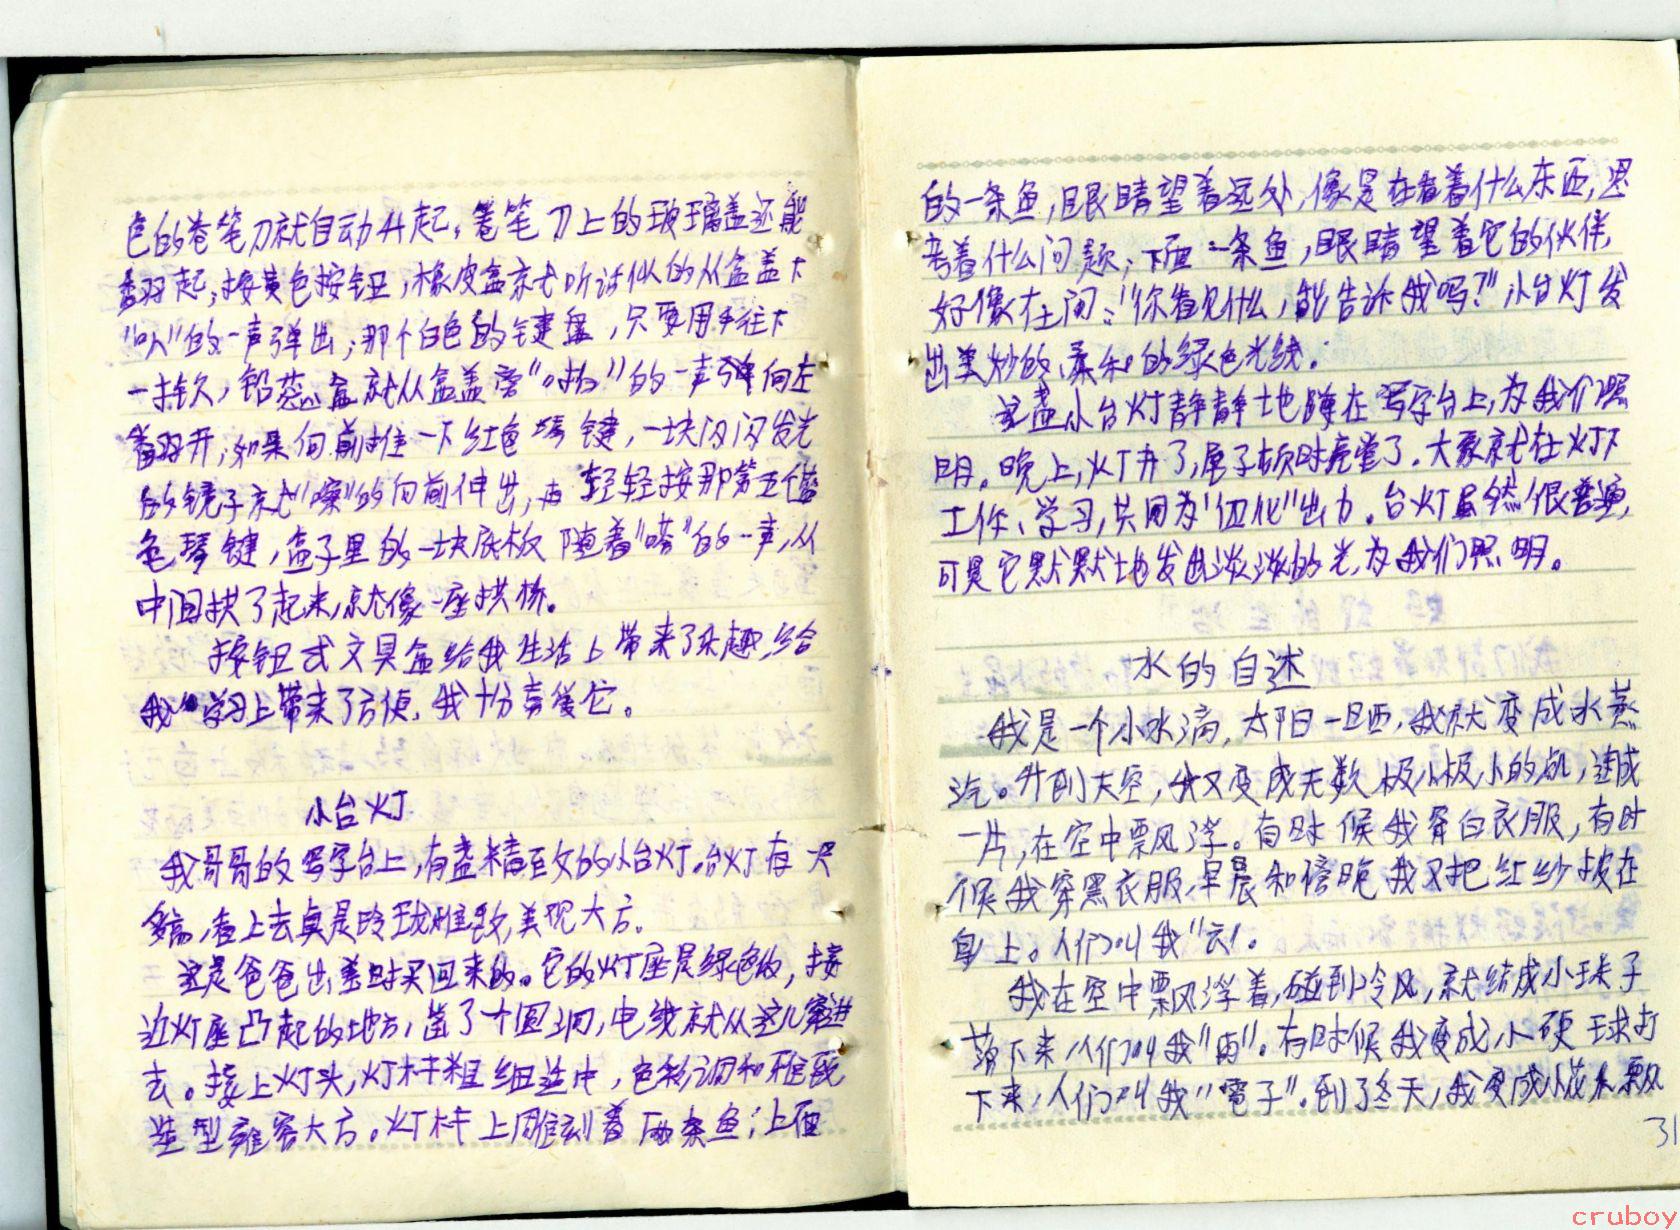 色的卷笔刀就自动升起,卷笔刀上的玻璃盖还能
翻起;按黄色按钮,橡皮盒就听话似的从盒盖下
“叭”的一声弹出;那个白色的键盘,只要用手往下
一按,铅蕊盒就从盒盖旁“啪”的一声弹向左
翻开;如果向前推一下红色琴键,一块闪闪发光
的镜子就“嚓”的向前伸出,再轻轻按那第五个蓝
色琴键,盒子里的一块底板随着“嗒”的一声,从
中间拱了起来,就像一座拱桥。
按钮式文具盒给我生活上带来了乐趣,给
我学习上带来了方便,我十分喜爱它。
小台灯
我哥哥的写字台上,有盏精致的小台灯。台灯有一尺
多高,看上去真是玲珑雅致,美观大方。
这是爸爸出差时买回来的。它的灯座是绿色的,接
近灯座凸起的地方,凿了个圆洞,电线就从这儿穿进
去。接上灯头,灯杆粗细适中,色彩调和雅致
造型雍容大方。灯杆上雕刻着两条鱼;上面
的一条鱼,眼睛望着远处,像是在看着什么东西,思
考着什么问题;下面一条鱼,眼睛望着它的伙伴,
好像在问:“你看见什么,能告诉我吗?”小台灯发
出美妙的、柔和的绿色光线。
这盏小台灯静静地蹲在写字台上,为我们照
明。晚上,灯开了,屋子顿时亮堂了。大家就在灯下
工作、学习,共同为“四化”出力。台灯虽然很普通,
可是它默默地发出淡淡的光,为我们照明。
水的自述
我是一个小水滴,太阳一晒,我就变成水蒸
汽。升到天空,我又变成无数极小极小的点,连成
一片,在空中飘浮。有时候我穿白衣服,有时
候我穿黑衣服,早晨和傍晚我又把红纱披在
身上。人们叫我“云”。
我在空中飘浮着,碰到冷风,就结成小珠子
落下来,人们叫我“雨”。有时候我变成小硬球打
下来,人们叫我“雹子”。到了冬天,我变成小花朵飘
31
cruboy